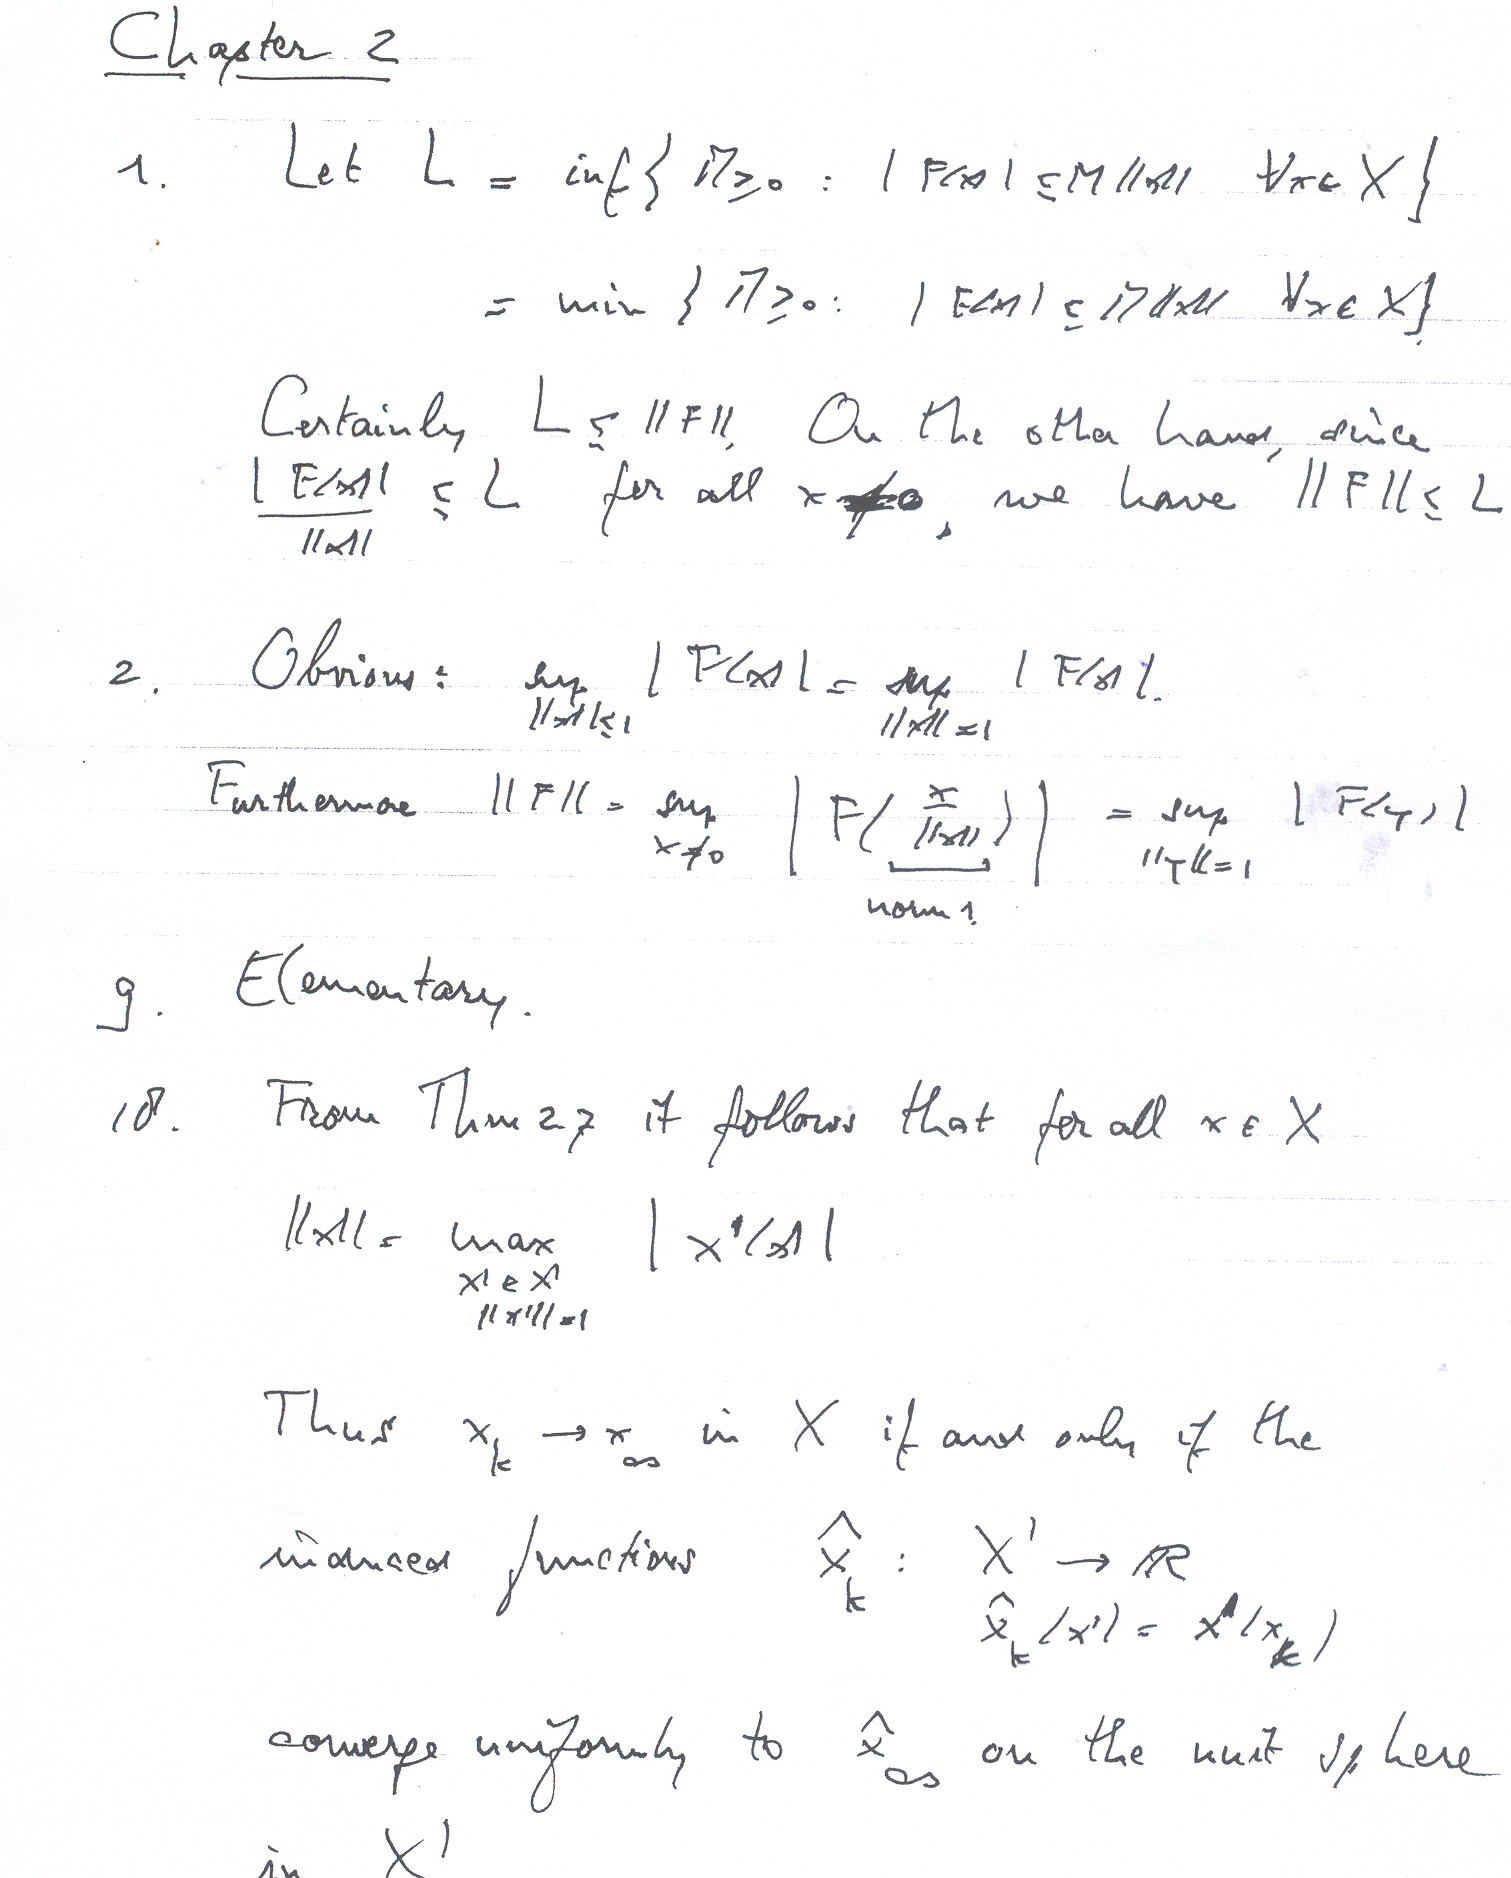 Chapter 2
1. Let L = inf { M ≥ 0 : | F(x) | ≤ M ||x|| ∀x ∈ X }
= min { M ≥ 0 : | F(x) | ≤ M ||x|| ∀x ∈ X }
Certainly L ≤ ||F||. On the other hand, since
|F(x)| / ||x|| ≤ L for all x ≠ 0, we have ||F|| ≤ L
2. Obvious: sup_{||x|| ≤ 1} | F(x) | = sup_{||x|| = 1} | F(x) |.
Furthermore ||F|| = sup_{x ≠ 0} | F( x / ||x|| ) | = sup_{||y|| = 1} | F(y) |
norm 1.
9. Elementary.
10. From Thm 2.7 it follows that for all x ∈ X
||x|| = max_{x' ∈ X', ||x'|| = 1} | x'(x) |
Thus x_k → x_∞ in X if and only if the
induced functions x̂_k : X' → ℝ
x̂_k (x') = x'(x_k)
converge uniformly to x̂_∞ on the unit sphere
in X'